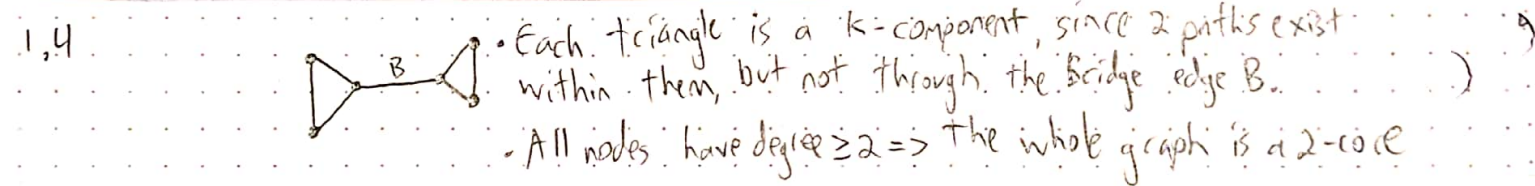 1,4
B
• Each triangle is a k-component, since 2 paths exist
within them, but not through the Bridge edge B.
• All nodes have degree ≥ 2 => the whole graph is a 2-core